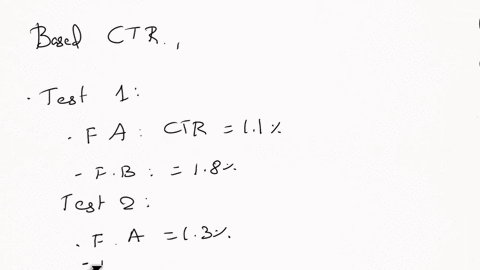 Based CTR.,
. Test 1:
. F A: CTR = 1.1%
- F.B: = 1.8%.
Test 2:
. F. A = 1.3%.